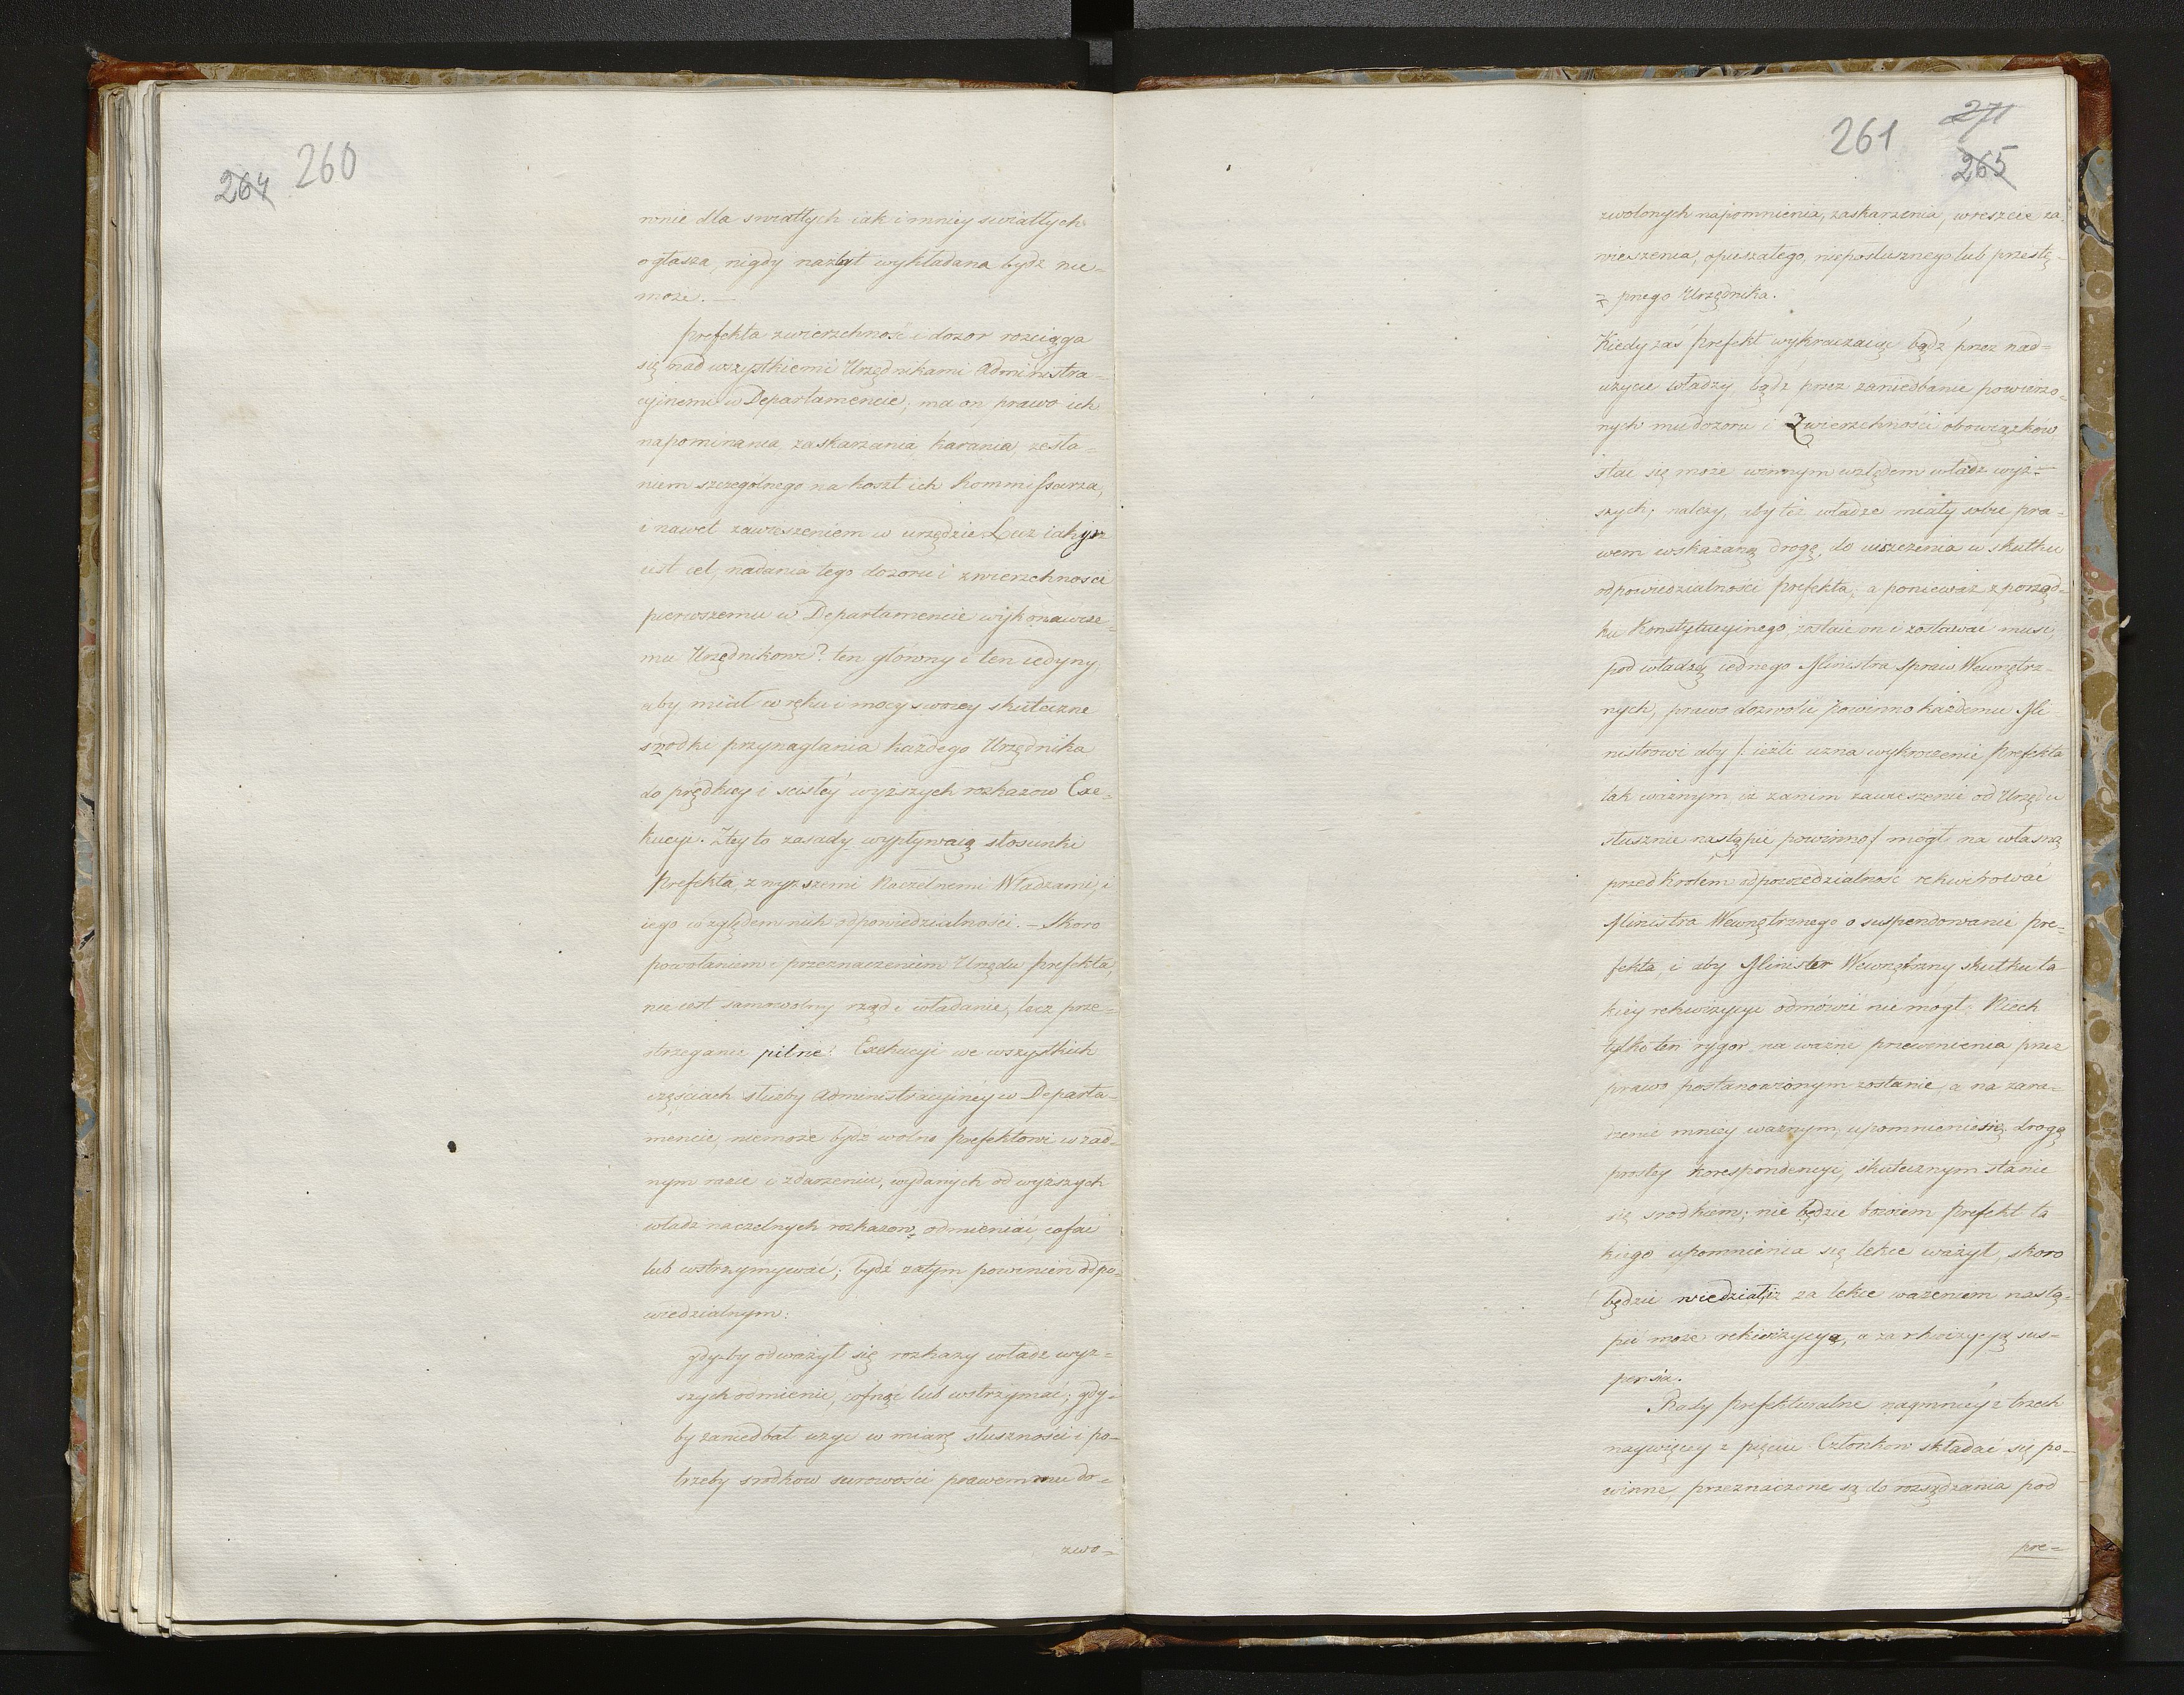 264 260
wnie dla swiatłych iak i mniey swiatłych
ogłasza, nigdy nazbyt wykładana bydz nie-
może. —
Prefekta zwierzchność i dozor rozciąga
się nad wszystkiemi Urzędnikami Administra-
cyinemi w Departamencie, ma on prawo ich
napominania zaskarzania, karania, zesła-
niem szczególnego na koszt ich Kommissarza,
i nawet zawieszeniem w urzędzie. Lecz iakiż
iest cel, nadania tego dozoru i zwierzchnosci
pierwszemu w Departamencie wykonawcze-
mu Urzędnikowi? ten głowny i ten iedyny,
aby miał w ręku i mocy swoiey skuteczne
srzodki przynaglania każdego Urzędnika
do prędkiey i scisłéy wyższych rozkazow Exe-
kucyi. Z tey to zasady wypływaią stosunki
Prefekta, z wyższemi Naczelnemi Władzami, i
iego względem nich odpowiedzialności. — Skoro
powołaniem i przeznaczeniem Urzędu Prefekta,
nie iest samowolny rząd i władanie, lecz prze-
strzeganie pilne Exekucyi we wszystkich
częściach służby administracyinéy w Departa-
mencie, niemoże bydź wolno Prefektowi w żad-
nym razie i zdarzeniu, wydanych od wyższych
władz naczelnych rozkazow, odmieniać, cofać
lub wstrzymywać; bydź zatym powinien odpo-
wiedzialnym:
gdyby odważył się rozkazy władz wyż-
szych odmienić, cofnąc lub wstrzymać; gdy-
by zaniedbał użyc w miarę słuszności i po-
trzeby srodkow surowości prawem mu do-
zwo-
261 271
265
zwolonych napomnienia, zaskarzenia, wreszcie za-
wieszenia, opieszałego, nieposłusznego lub przestę-
pnego Urzędnika.
Kiedy zaś Prefekt wykraczaiąc bądź przez nad-
użycie władzy bądź przez zaniedbanie powierzo-
nych mu dozoru i Zwierzchności obowiązków,
stac się może winnym względem władz wyż-
szych; należy, aby też władze miały sobie pra-
wem wskazaną drogę, do wszczenia w skutku
odpowiedzialności Prefekta; a ponieważ z porząd-
ku Konstytucyinego, zostaie on i zostawać musi,
pod władzą iednego Ministra Spraw Wewnętrz-
nych, prawo dozwolić powinno każdemu Mi-
nistrowi aby /: ieżli uzna wykroczenie Prefekta
tak ważnym, iż zanim zawieszenie od Urzędu
słusznie nastąpić powinno / mógł na własną
przed Krolem odpowiedzialność rekwirować
Ministra Wewnętrznego o suspendowanie Pre-
fekta, i aby Minister Wewnętrzny skutku ta-
kiey rekwizycyi odmówić nie mógł. Niech
tylko ten rygor na ważne przewinienia przez
prawo postanowionym zostanie, a na zara-
dzenie mniey ważnym, upomnienie się drogą
prostey korespondencyi, skutecznym stanie
się srodkiem; nie będzie bowiem Prefekt ta-
kiego upomnienia się lekce ważył, skoro
będzie wiedział, iż za lekce ważeniem nastą-
pić może rekwizycya, a za rekwizycyą sus-
pensia.
Rady Prefekturalne naymniey z trzech
naywięcey z pięciu Członkow składać się po-
winne, przeznaczone są do rozsądzania pod
pre-